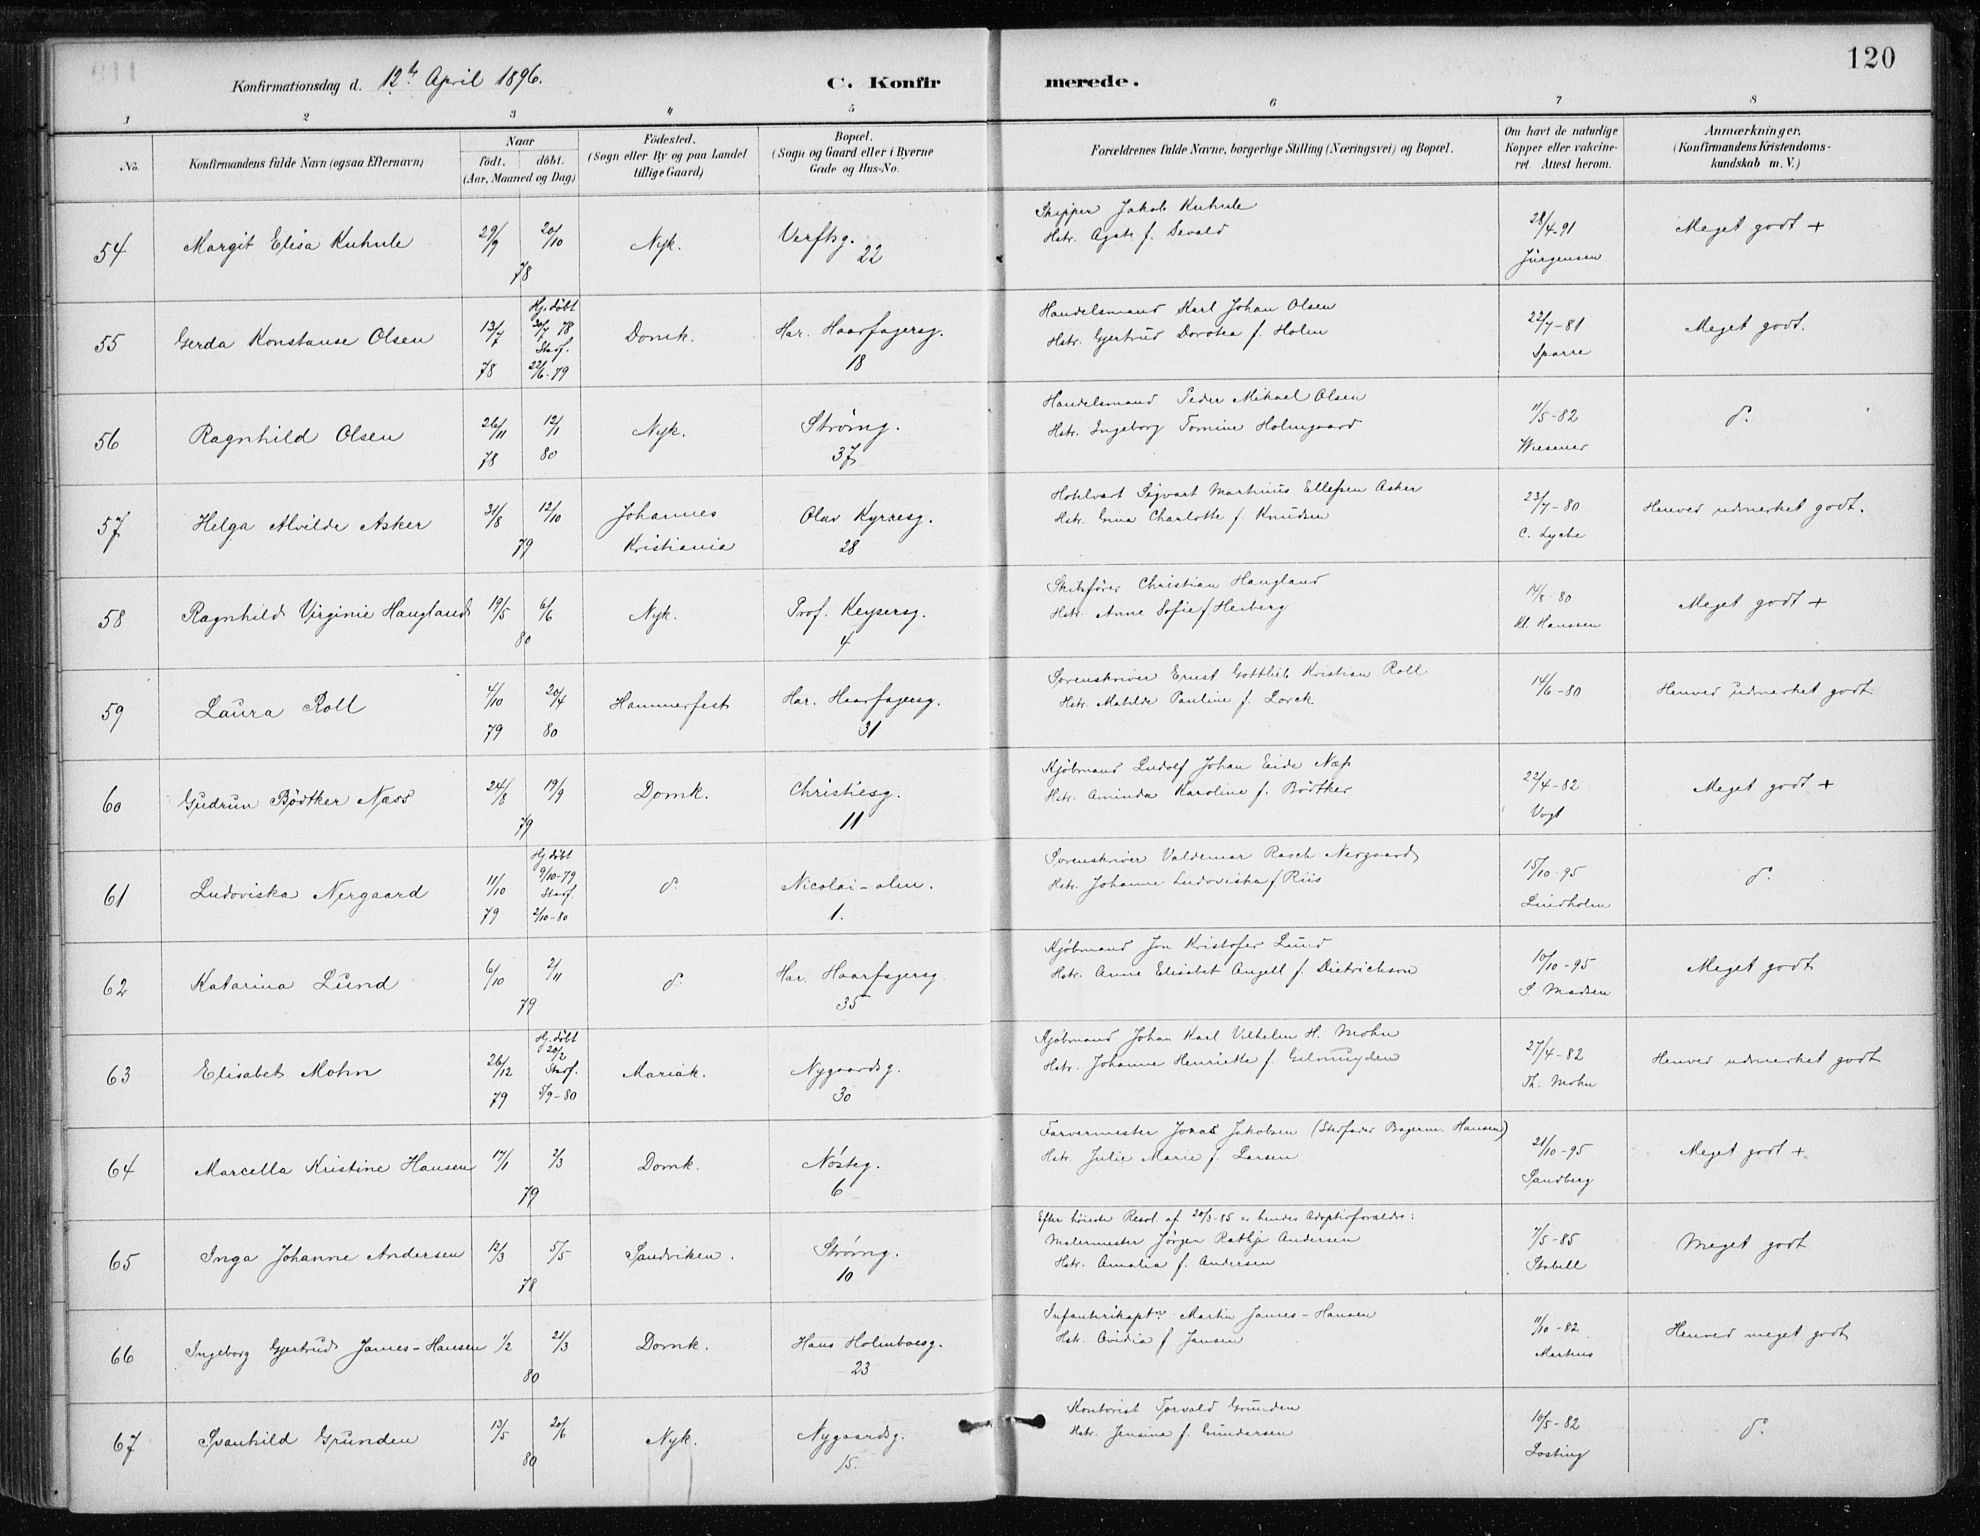 120
Konfirmationsdag d. 12te April 1896.
C. Konfirmerede.
1 2 3 4 5 6 7 8
No. Konfirmandens fulde Navn (ogsaa Efternavn) Naar født. døbt. (Aar, Maaned og Dag) Fødested. (Sogn eller By og paa Landet tillige Gaard) Bopæl. (Sogn og Gaard eller i Byerne Gade og Hus-No. Forældrenes fulde Navne, borgerlige Stilling (Næringsvei) og Bopæl. Om havt de naturlige Kopper eller vakcineret. Attest herom. Anmærkninger. (Konfirmandens Kristendomskundskab m. V.)
54 Margit Elisa Kuhnle 29/9 20/10 78 Nyk. Verftsg. 22 Skipper Jakob Kuhnle
Hstr. Agate f. Devald 28/4-91 Jürgensen Meget godt +
55 Gerda Konstanse Olsen 13/7 78 Hj. døbt 30/7 78 Stadf. 22/6-79 Domk. Har. Haarfagersg. 18 Handelsmand Karl Johan Olsen
Hstr. Gjertrud Dorotea f. Holm 22/7-81 Sparre Meget godt.
56 Ragnhild Olsen 26/11 78 12/1 80 Nyk. Strømg. 37 Handelsmand Peder Mikael Olsen
Hstr. Ingeborg Tomine Holmgaard 11/5-82 Wiesener d.
57 Helga Alvilde Asker 31/8 12/10 79 Johannes Kristiania Olav Kyrresg. 28 Hotelvært Sigvart Martinius Ellefsen Asker
Hstr. Grina Charlotte f. Knudsen 23/7-80 C. Lyche Henved udmerket godt.
58 Ragnhild Virginie Haugland 19/5 6/6 80 Nyk. Prof. Keysersg. 4 Skibsfører Christian Haugland
Hstr. Anne Sofie f. Heiberg 14/8-80 Kl. Hanssen Meget godt +
59 Laura Roll 4/10 79 20/4 80 Hammerfest Har. Haarfagersg. 31 Sorenskriver Ernst Gottlieb Kristian Roll
Hstr. Matilde Pauline f. Lorck 14/6-80 Henved udmerket godt
60 Gudrun Bødtker Næss 24/8 19/9 79 Domk. Christiesg. 11 Kjøbmand Ludolf Johan Eide Næss
Hstr. Aminda Karoline f. Bödtker 22/4-82 Vogt Meget godt +
61 Ludoviska Nergaard 11/10 79 Hj. døbt 9/10-79 Stadf. 2/10-80 d. Nicolai-alm. 1. Sorenskriver Valdemar Rasch Nergaard
Hstr. Johanne Ludoviska f. Riis 15/10-95 Lindholm d.
62 Katarina Lund 6/10 2/11 79 d. Har. Haarfagersg. 35 Kjøbmand Jon Kristofer Lund
Hstr. Anne Elisabet Angell f. Dietrichson 10/10-95 S. Madsen Meget godt
63 Elisabet Mohn 26/12 79 Hj. døbt 20/2 Stadf. 5/9-80 Mariak. Nygaardsg. 30 Kjøbmand Johan Karl Vilhelm H. Mohn
Hstr. Johanne Henriette f. Gelmuyden 27/4-82 Th. Mohn Henved udmerket godt
64 Marcella Kristine Hansen 17/1 2/3 79 Domk. Nøsteg. 6 Farvermester Jonas Jakobsen (Stedfader Bagerm. Hansen)
Hstr. Julie Marie f. Larsen 21/10-95 Sandberg Meget godt +
65 Inga Johanne Andersen 12/3 5/5 78 Sandviken. Strømg. 10 Efter høieste Resol. af 20/3-85 er hendes Adoptivforældre:
Malermester Jørgen Rathje Andersen
Hstr. Amalia f. Andersen 7/5-85 Stabell Meget godt
66 Ingeborg Gjertrud James-Hansen 1/2 21/3 80 Domk. Hans Holmboesg. 23 Infanterikaptn. Martin James-Hansen
Hstr. Ovidia f. Jansen 11/10-82 Martens Henved meget godt
67 Svanhild Grunden 13/5 20/6 80 Nyk. Nygaardsg. 15. Kontorist Torvald Grunden
Hstr. Jensine f. Gundersen 10/5-82 Losting d.